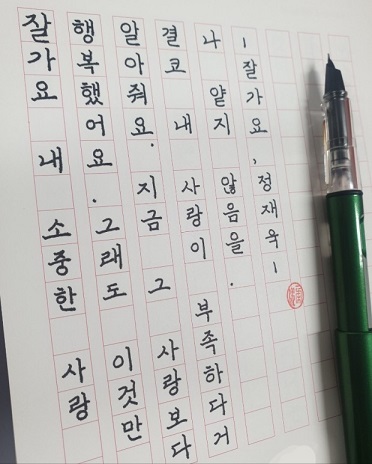 잘가요 내 소중한 사랑
행복했어요. 그래도 이것만
알아줘요. 지금 그 사랑보다
결코 내 사랑이 부족하다거
나 얕지 않음을.
ㅣ잘가요, 정재욱ㅣ